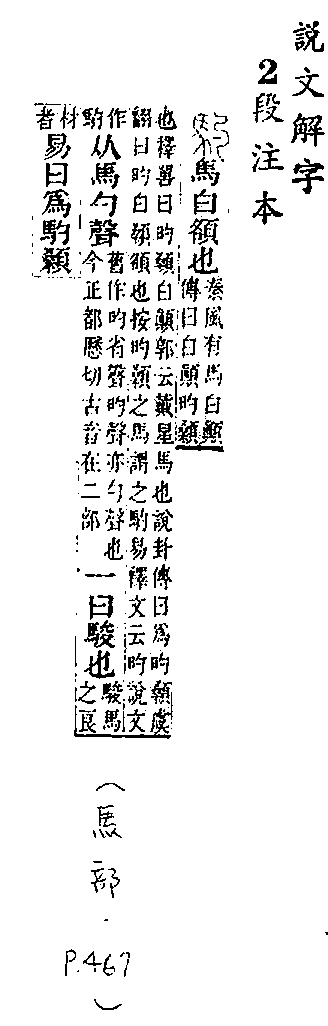 説文解字
2段注本
馬白頟也秦風有馬白顚
傳曰白顚旳顙
也釋嘼曰旳顙白顚郭云戴星馬也說卦傳曰為旳顙虞
翻曰旳白顙頟也按旳顙之馬謂之馰易釋文云旳說文
作
馰
从馬勺聲
舊作旳省聲旳聲亦勺聲也
今正都歷切古音在二部
一曰駿也
駿馬
之良
材
者
易曰爲馰顙
(馬部．P.467)